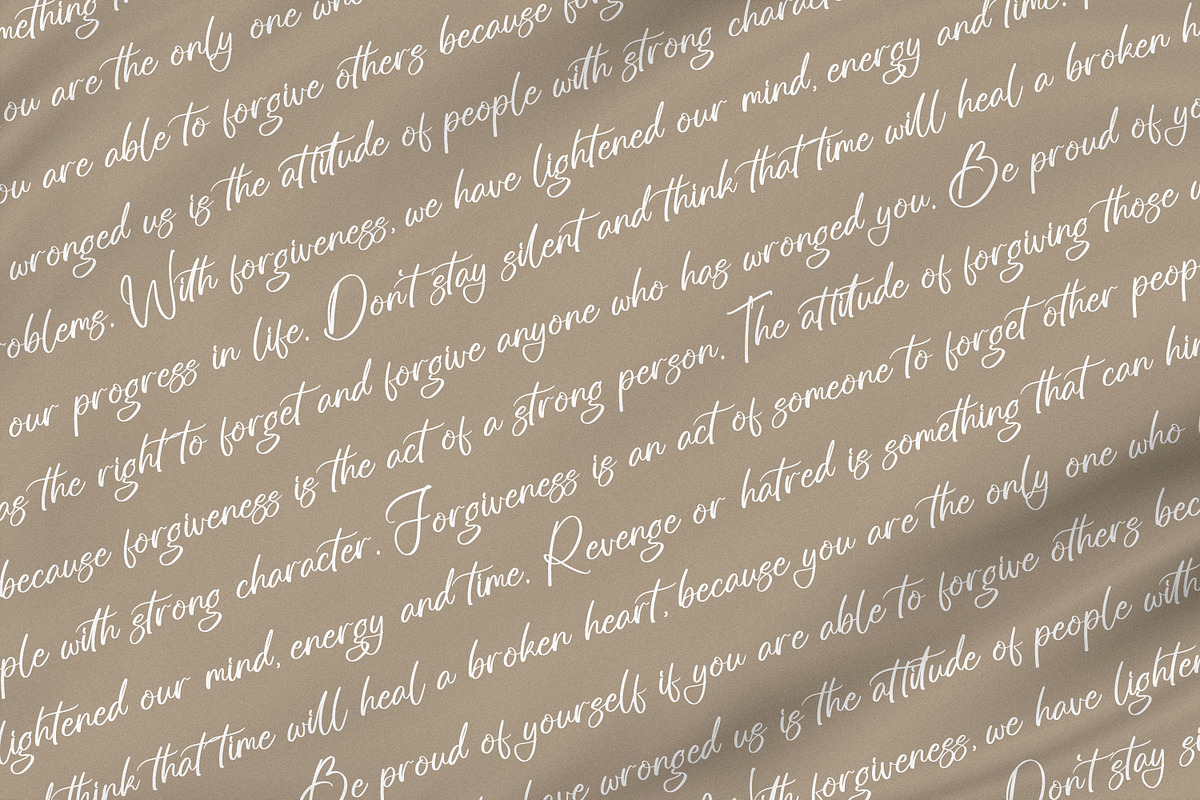 mething
ou are the only one who
ou are able to forgive others because forg
wronged us is the attitude of people with strong charac
roblems. With forgiveness, we have lightened our mind, energy and time.
our progress in life. Don't stay silent and think that time will heal a broken h
as the right to forget and forgive anyone who has wronged you. Be proud of yo
because forgiveness is the act of a strong person. The attitude of forgiving those
ple with strong character. Forgiveness is an act of someone to forget other peop
lightened our mind, energy and time. Revenge or hatred is something that can hin
think that time will heal a broken heart, because you are the only one who
Be proud of yourself if you are able to forgive others bec
ave wronged us is the attitude of people with
With forgiveness, we have lighten
Don't stay si